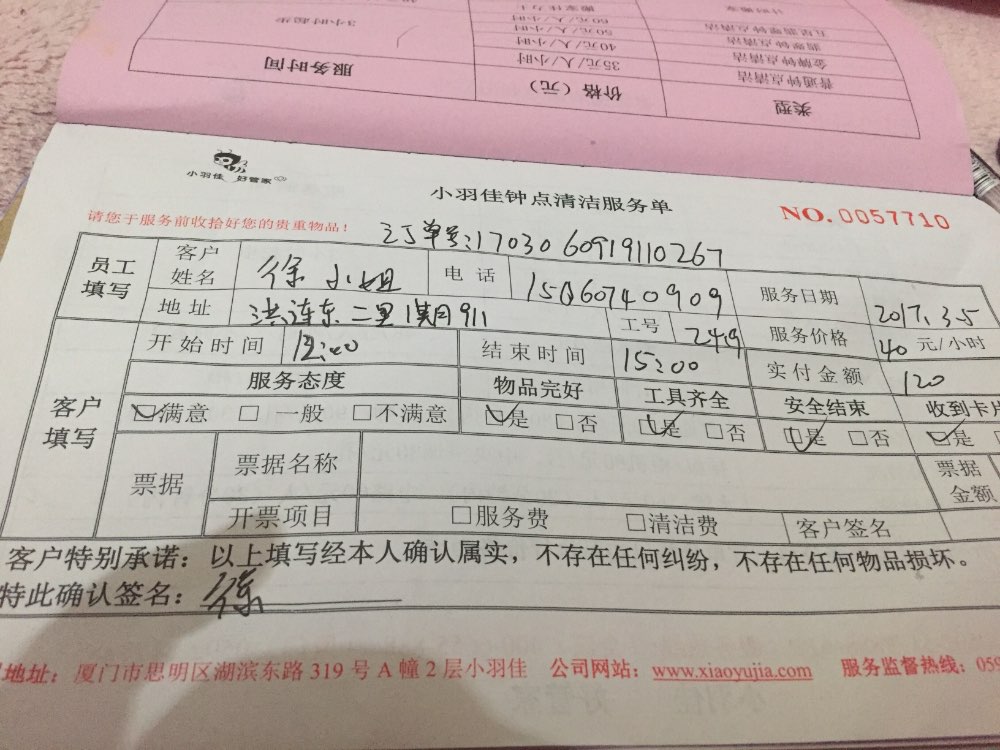 计时搬家 搬家佳力士
五星翡翠钟点清洁 60元/人/小时
翡翠钟点清洁 50元/人/小时 3小时起步
金牌钟点清洁 40元/人/小时
普通钟点清洁 35元/人/小时
类型 价格（元） 服务时间
小羽佳 好管家
小羽佳钟点清洁服务单 NO.0057710
请您于服务前收拾好您的贵重物品！
订单号:17030 60919110267
员工填写 客户姓名 徐小姐 电话 15060740909 服务日期 2017.3.5
地址 洪莲东二里 911 工号 2419 服务价格 40 元/小时
开始时间 12:00 结束时间 15:00 实付金额 120
客户填写 服务态度 物品完好 工具齐全 安全结束 收到卡片
☑满意 □一般 □不满意 ☑是 □否 ☑是 □否 ☑是 □否 ☑是
票据 票据名称 票据金额
开票项目 □服务费 □清洁费 客户签名
客户特别承诺：以上填写经本人确认属实，不存在任何纠纷，不存在任何物品损坏。
特此确认签名：徐
地址：厦门市思明区湖滨东路 319 号 A 幢 2 层小羽佳 公司网站：www.xiaoyujia.com 服务监督热线：059